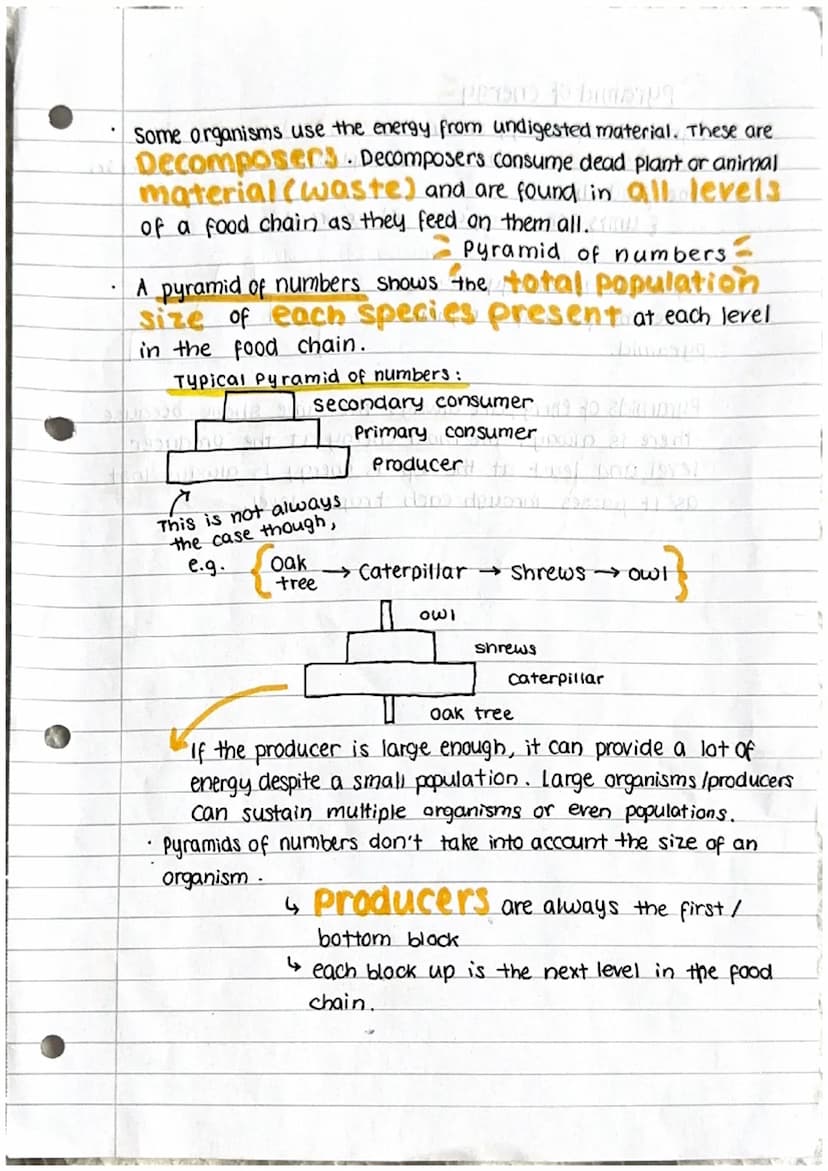 · Some organisms use the energy from undigested material. These are
Decomposers. Decomposers consume dead plant or animal
material (waste) and are found in all levels
of a food chain as they feed on them all.
Pyramid of numbers
· A pyramid of numbers shows the total population
size of each species present at each level
in the food chain.
Typical Pyramid of numbers:
secondary consumer
Primary consumer
Producer
This is not always
the case though,
e.g. { Oak tree → Caterpillar → Shrews → owl }
owl
shrews
caterpillar
oak tree
If the producer is large enough, it can provide a lot of
energy despite a small population. Large organisms/producers
can sustain multiple organisms or even populations.
· Pyramids of numbers don't take into account the size of an
organism.
↳ Producers are always the first/
bottom block
↳ each block up is the next level in the food
chain.